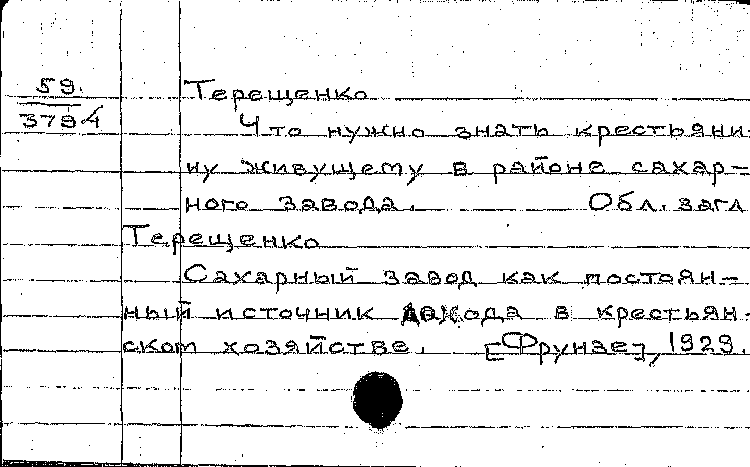 59.
3794
Терещенко
Что нужно знать крестьяни-
ну живущему в районе сахар-
ного завода. Обл. загл
Терещенко
Сахарный завод как постоян-
ный источник дохода в крестьян-
ском хозяйстве. [Фрунзе], 1929.